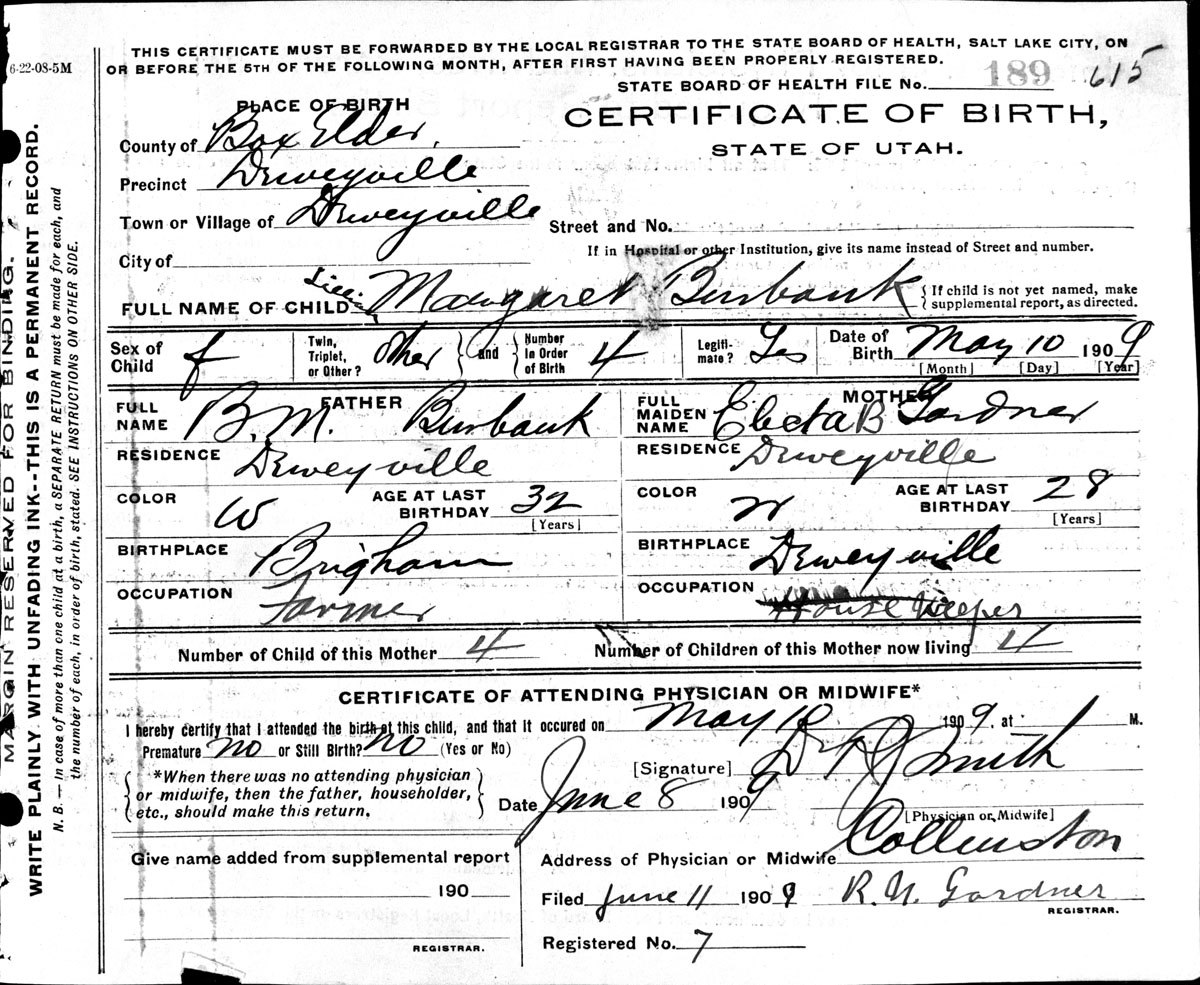 THIS CERTIFICATE MUST BE FORWARDED BY THE LOCAL REGISTRAR TO THE STATE BOARD OF HEALTH, SALT LAKE CITY, ON
OR BEFORE THE 5TH OF THE FOLLOWING MONTH, AFTER FIRST HAVING BEEN PROPERLY REGISTERED.
6-22-08-5M
STATE BOARD OF HEALTH FILE No. 189 615
PLACE OF BIRTH
CERTIFICATE OF BIRTH,
STATE OF UTAH.
County of Box Elder,
Precinct Deweyville
Town or Village of Deweyville
Street and No.
If in Hospital or other Institution, give its name instead of Street and number.
City of
FULL NAME OF CHILD Margaret Burbank
{ If child is not yet named, make
supplemental report, as directed.
Sex of Child f
Twin, Triplet, or Other? Other } and { Number In Order of Birth 4
Legiti- mate? Yes
Date of Birth May 10 1909
[Month] [Day] [Year]
FATHER
FULL NAME B. M. Burbank
RESIDENCE Deweyville
COLOR W AGE AT LAST BIRTHDAY 32
[Years]
BIRTHPLACE Brigham
OCCUPATION Farmer
MOTHER
FULL MAIDEN NAME Electa B Gardner
RESIDENCE Deweyville
COLOR W AGE AT LAST BIRTHDAY 28
[Years]
BIRTHPLACE Deweyville
OCCUPATION House Keeper
Number of Child of this Mother 4 Number of Children of this Mother now living 4
CERTIFICATE OF ATTENDING PHYSICIAN OR MIDWIFE*
I hereby certify that I attended the birth of this child, and that it occured on May 10 1909. at M.
Premature No or Still Birth? No (Yes or No)
{ *When there was no attending physician
or midwife, then the father, householder,
etc., should make this return. }
[Signature] Smith
Date June 8 1909
[Physician or Midwife]
Address of Physician or Midwife Collinston
Filed June 11 1909 R. N. Gardner
REGISTRAR.
Registered No. 7
Give name added from supplemental report
190
REGISTRAR.
MARGIN RESERVED FOR BINDING.
WRITE PLAINLY, WITH UNFADING INK--THIS IS A PERMANENT RECORD.
N. B. — In case of more than one child at a birth, a SEPARATE RETURN must be made for each, and
the number of each, in order of birth, stated. SEE INSTRUCTIONS ON OTHER SIDE.